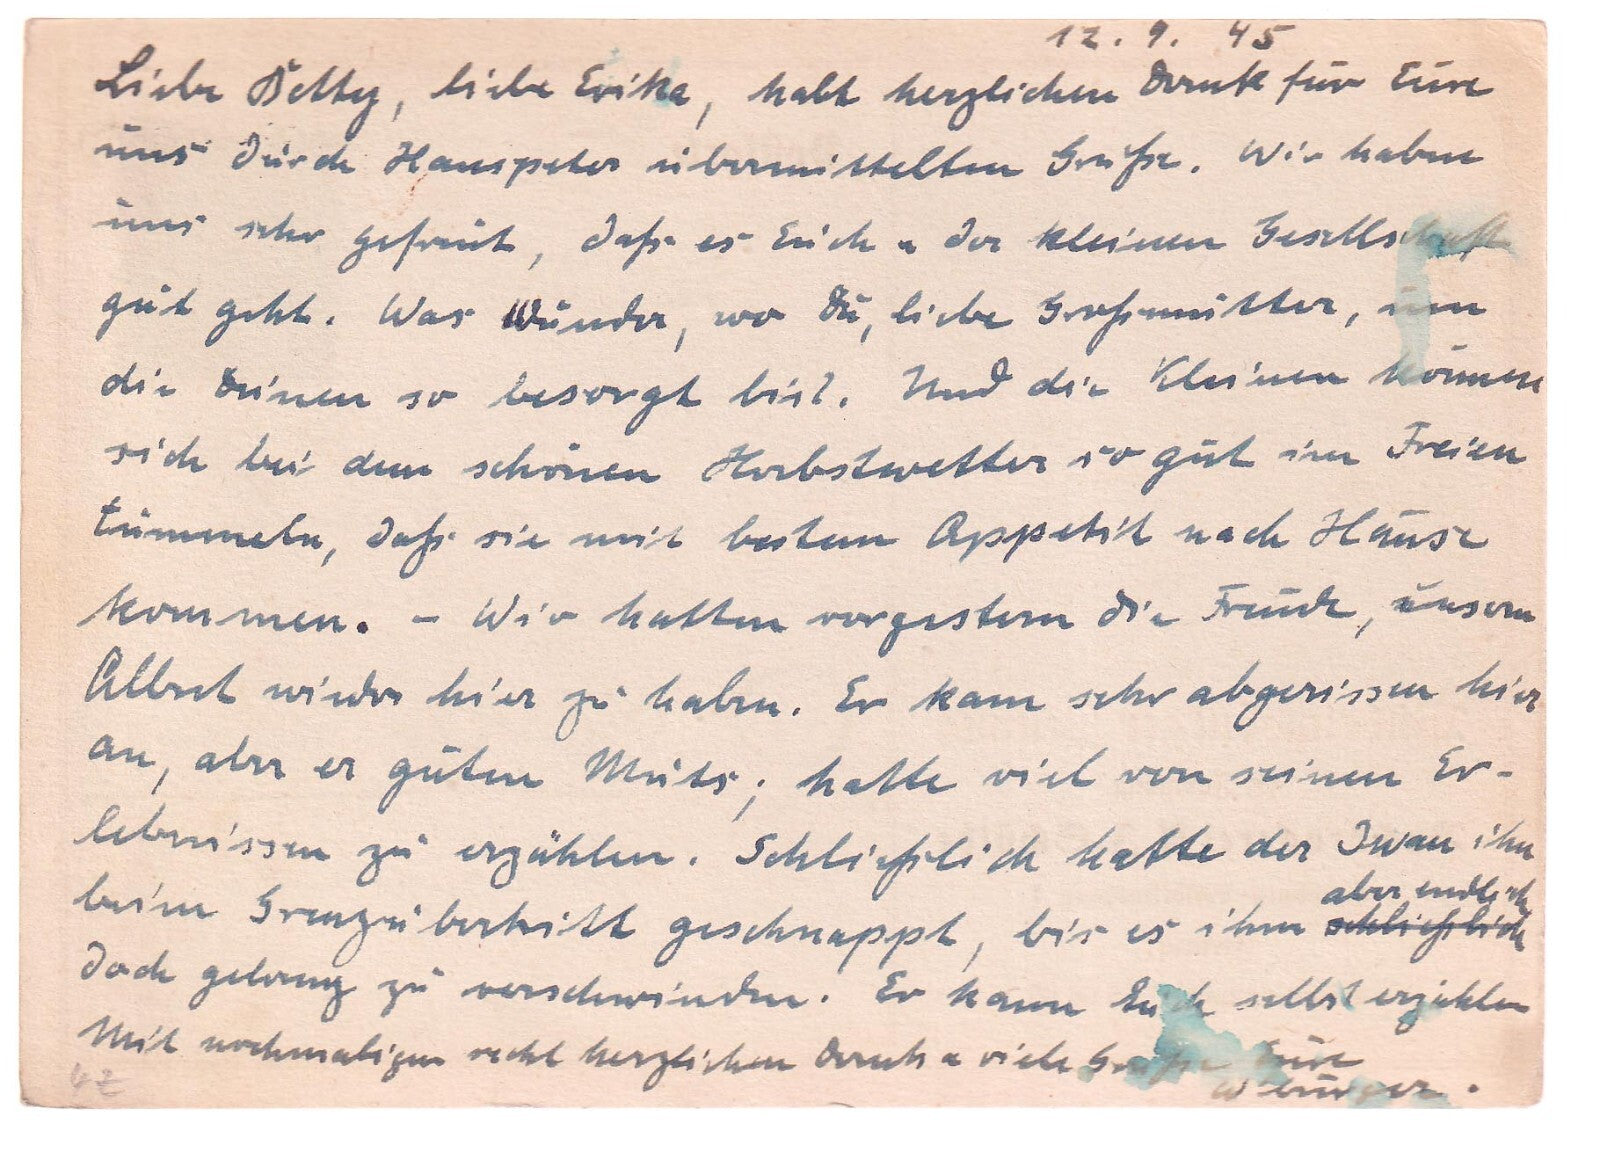 12. 9. 45
Liebe Betty, liebe Erika, habt herzlichen Dank für Eure
uns durch Hanspeter übermittelten Grüße. Wir haben
uns sehr gefreut, daß es Euch u der kleinen Gesellschaft
gut geht. Was Wunder, wo Du, liebe Großmutter, um
die Deinen so besorgt bist. Und die Kleinen können
sich bei dem schönen Herbstwetter so gut im Freien
tummeln, daß sie mit bestem Appetit nach Hause
kommen. – Wir hatten vorgestern die Freude, unsern
Albert wieder hier zu haben. Er kam sehr abgerissen hier
an, aber er guten Muts; hatte viel von seinen Er-
lebnissen zu erzählen. Schließlich hatte der Iwan ihn
beim Grenzübertritt geschnappt, bis es ihm schließlich aber endlich
doch gelang zu verschwinden. Er kann Euch selbst erzählen
Mit nochmaligem recht herzlichen Dank u viele Grüße Eure